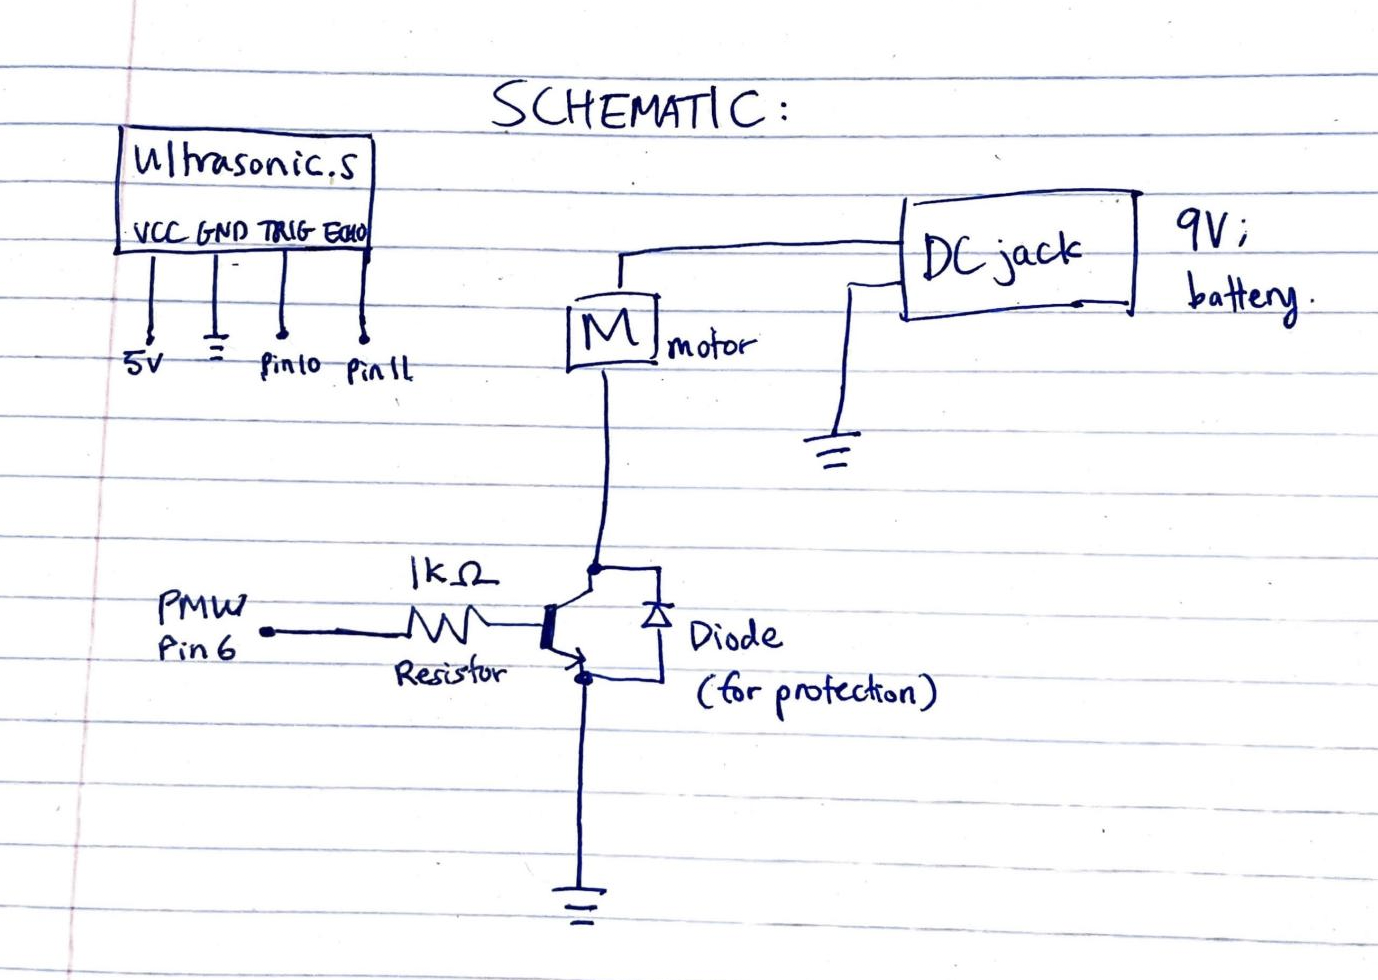 SCHEMATIC:
Ultrasonic.s
VCC GND TRIG ECHO
5V
Pin10
Pin11
DC jack
9V;
battery.
M
motor
1kΩ
PMW
Pin 6
Resistor
Diode
(for protection)